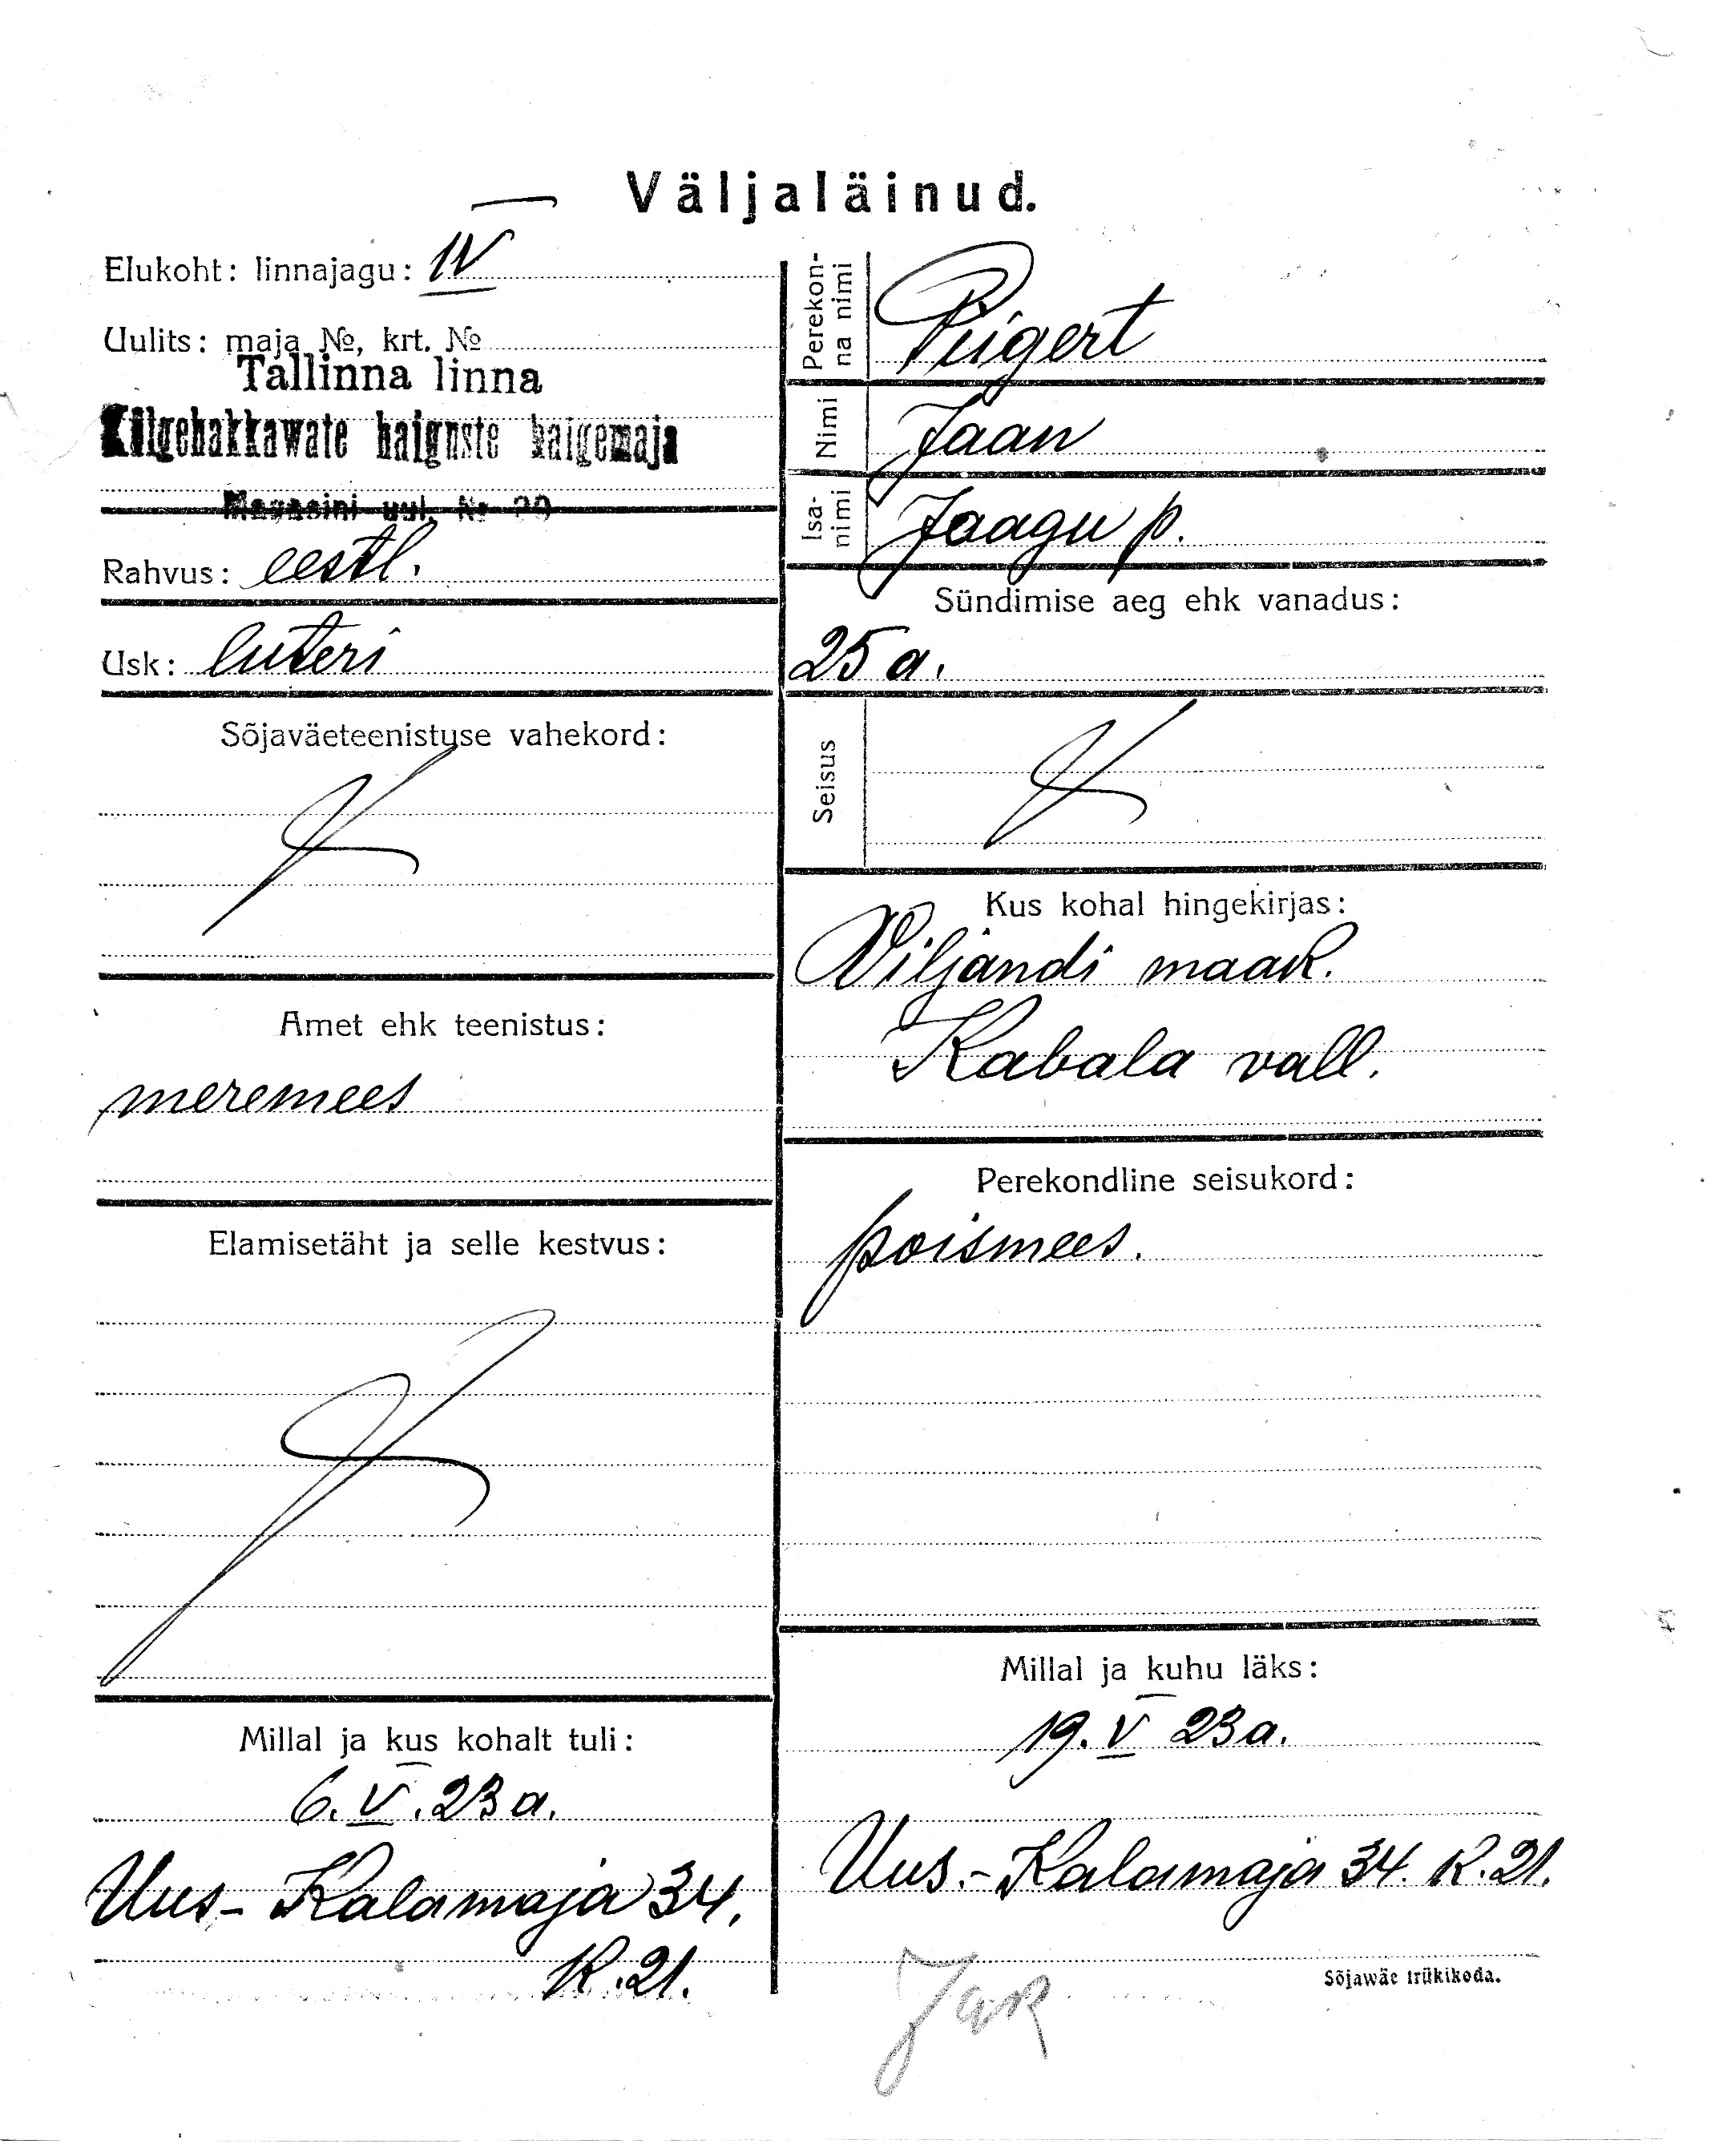 Väljaläinud.
Elukoht: linnajagu: IV
Uulits: maja №, krt. №
Tallinna linna
Külgehakkawate haiguste haigemaja
Magasini uul. Nr
Rahvus: eestl.
Usk: luteri
Sõjaväeteenistuse vahekord:
Amet ehk teenistus:
meremees
Elamisetäht ja selle kestvus:
Millal ja kus kohalt tuli:
6. V. 23 a.
Uus-Kalamaja 34.
K. 21.
Perekon-
na nimi
Piigert
Nimi Jaan
Isa-
nimi
Jaagu p.
Sündimise aeg ehk vanadus:
25 a.
Seisus
Kus kohal hingekirjas:
Viljandi maak.
Kabala vall.
Perekondline seisukord:
poismees.
Millal ja kuhu läks:
19. V 23 a.
Uus.-Kalamaja 34. K. 21.
Sõjawäe trükikoda.